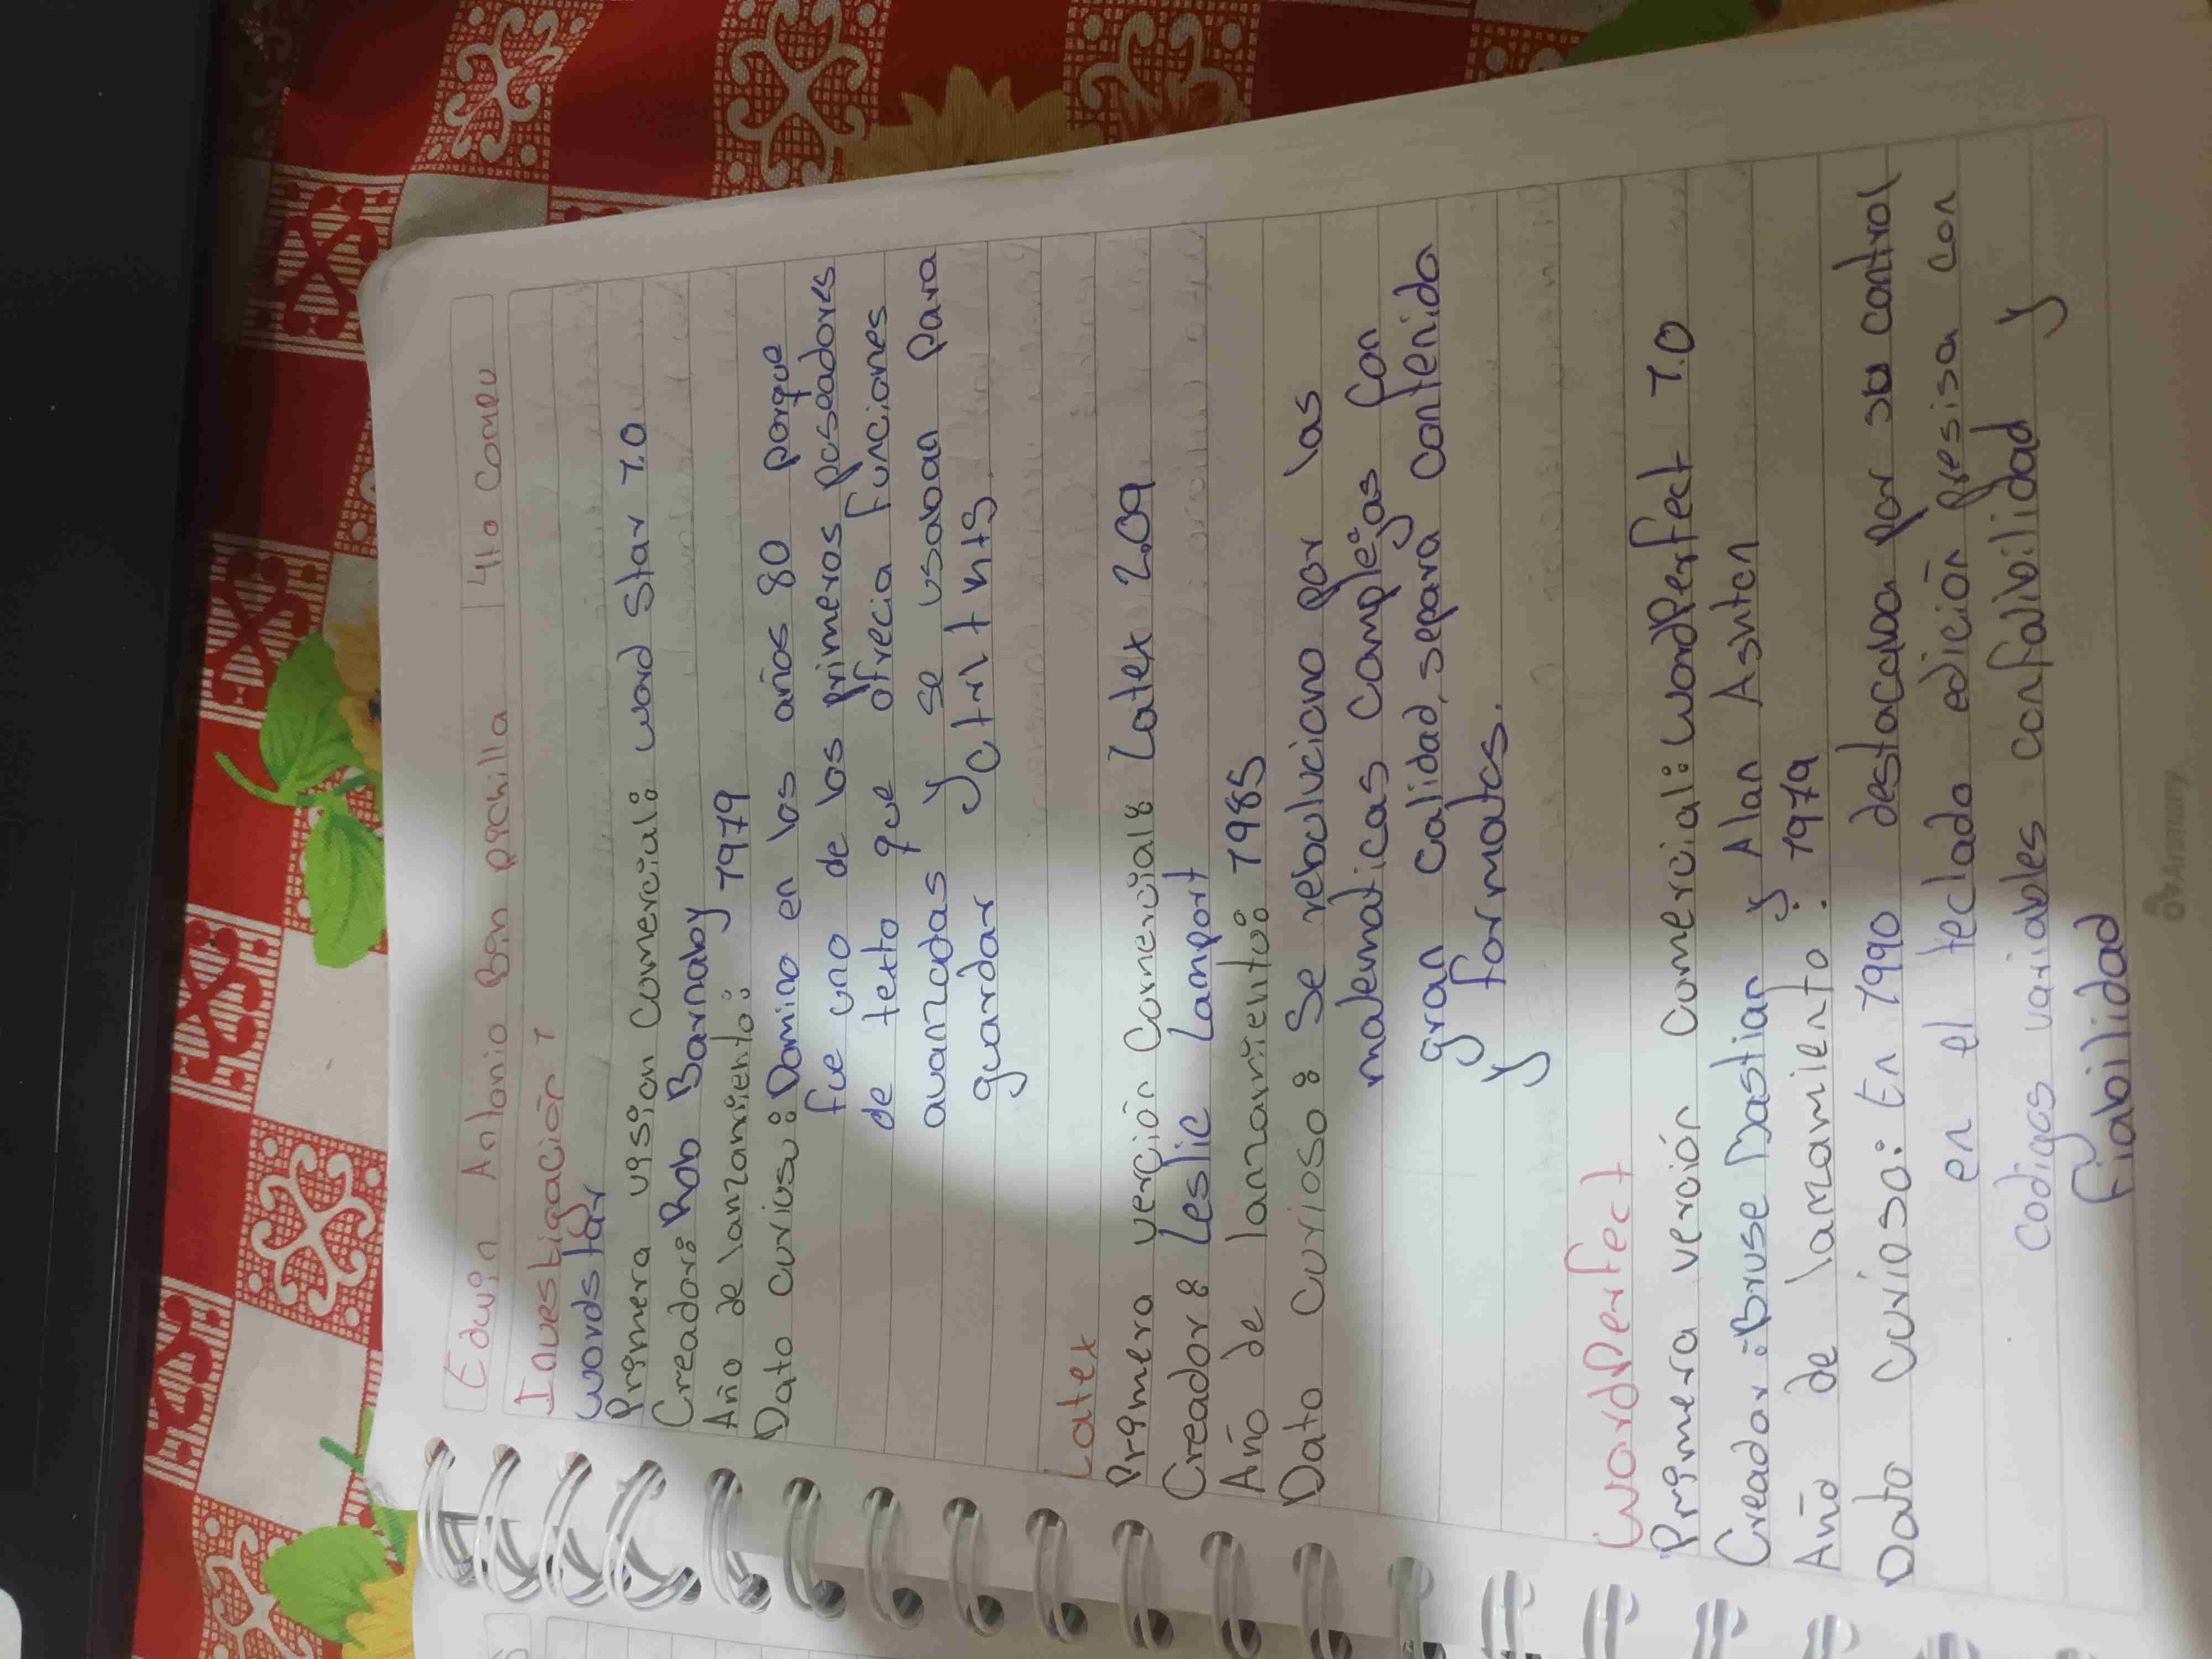 Edwin Antonio Bin pachilla 4to Compu
Investigación 1
wordstar
Primera vesion Comercial: word Star 1.0
Creador: Rob Barnaby
Año de lanzamiento: 1979
Dato curioso: Domino en los años 80 porque
fue uno de los primeros poseadores
de texto que ofrecia funciones
avanzadas y se usaban para
guardar y Ctrl + K+S.
Latex
Primera verción Comercial: Latex 2.09
Creador: Leslie Lamport
Año de lanzamiento: 1985
Dato curioso: Se reboluciono por las
matematicas complejas con
gran calidad, separa contenido
y formatos.
WordPerfect
Primera verción comercial: WordPerfect 1.0
Creador: Bruse Bastian y Alan Ashton
Año de lanzamiento: 1979
Dato curioso: En 1990 destacaba por su control
en el teclado edición presisa con
codigos variables confaibilidad y
fiabilidad
Armony